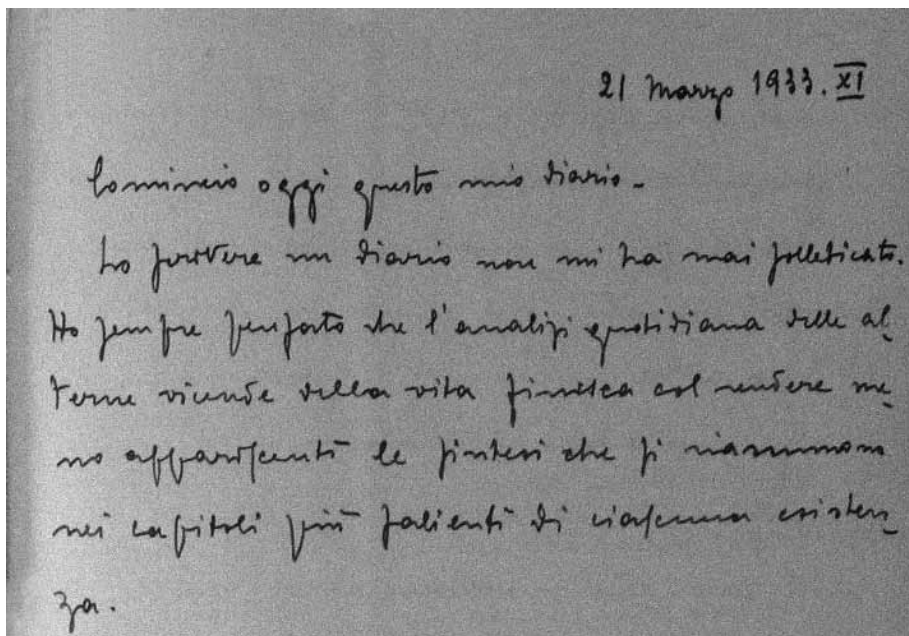 21 Marzo 1933. XI
Comincio oggi questo mio diario.
Lo scrivere un diario non mi ha mai solleticato.
Ho sempre pensato che l'analisi quotidiana delle al-
terne vicende della vita finisca col rendere me-
no appariscenti le sintesi che si riassumono
nei capitoli più salienti di ciascuna esisten-
za.